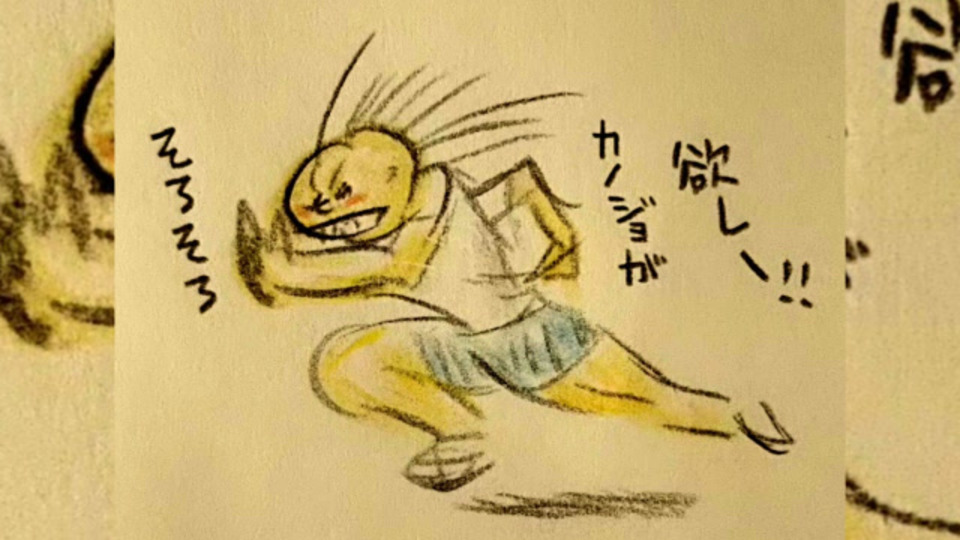 そろそろ
カノジョが
欲しい!!